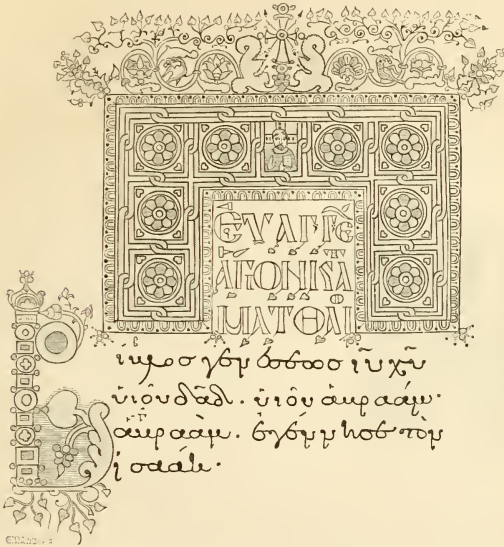 ΕΥΑΓΓΕ
ΛΙΟΝ ΚΑΤ
ΜΑΤΘΑΙΟ
Βίβλοσ γενέσεωσ ἰῦ χῦ
υἱοῦ δᾱδ. υἱοῦ ἀβραάμ·
ἀβραὰμ. ἐγέννησε τὸν
ἰσαάκ·